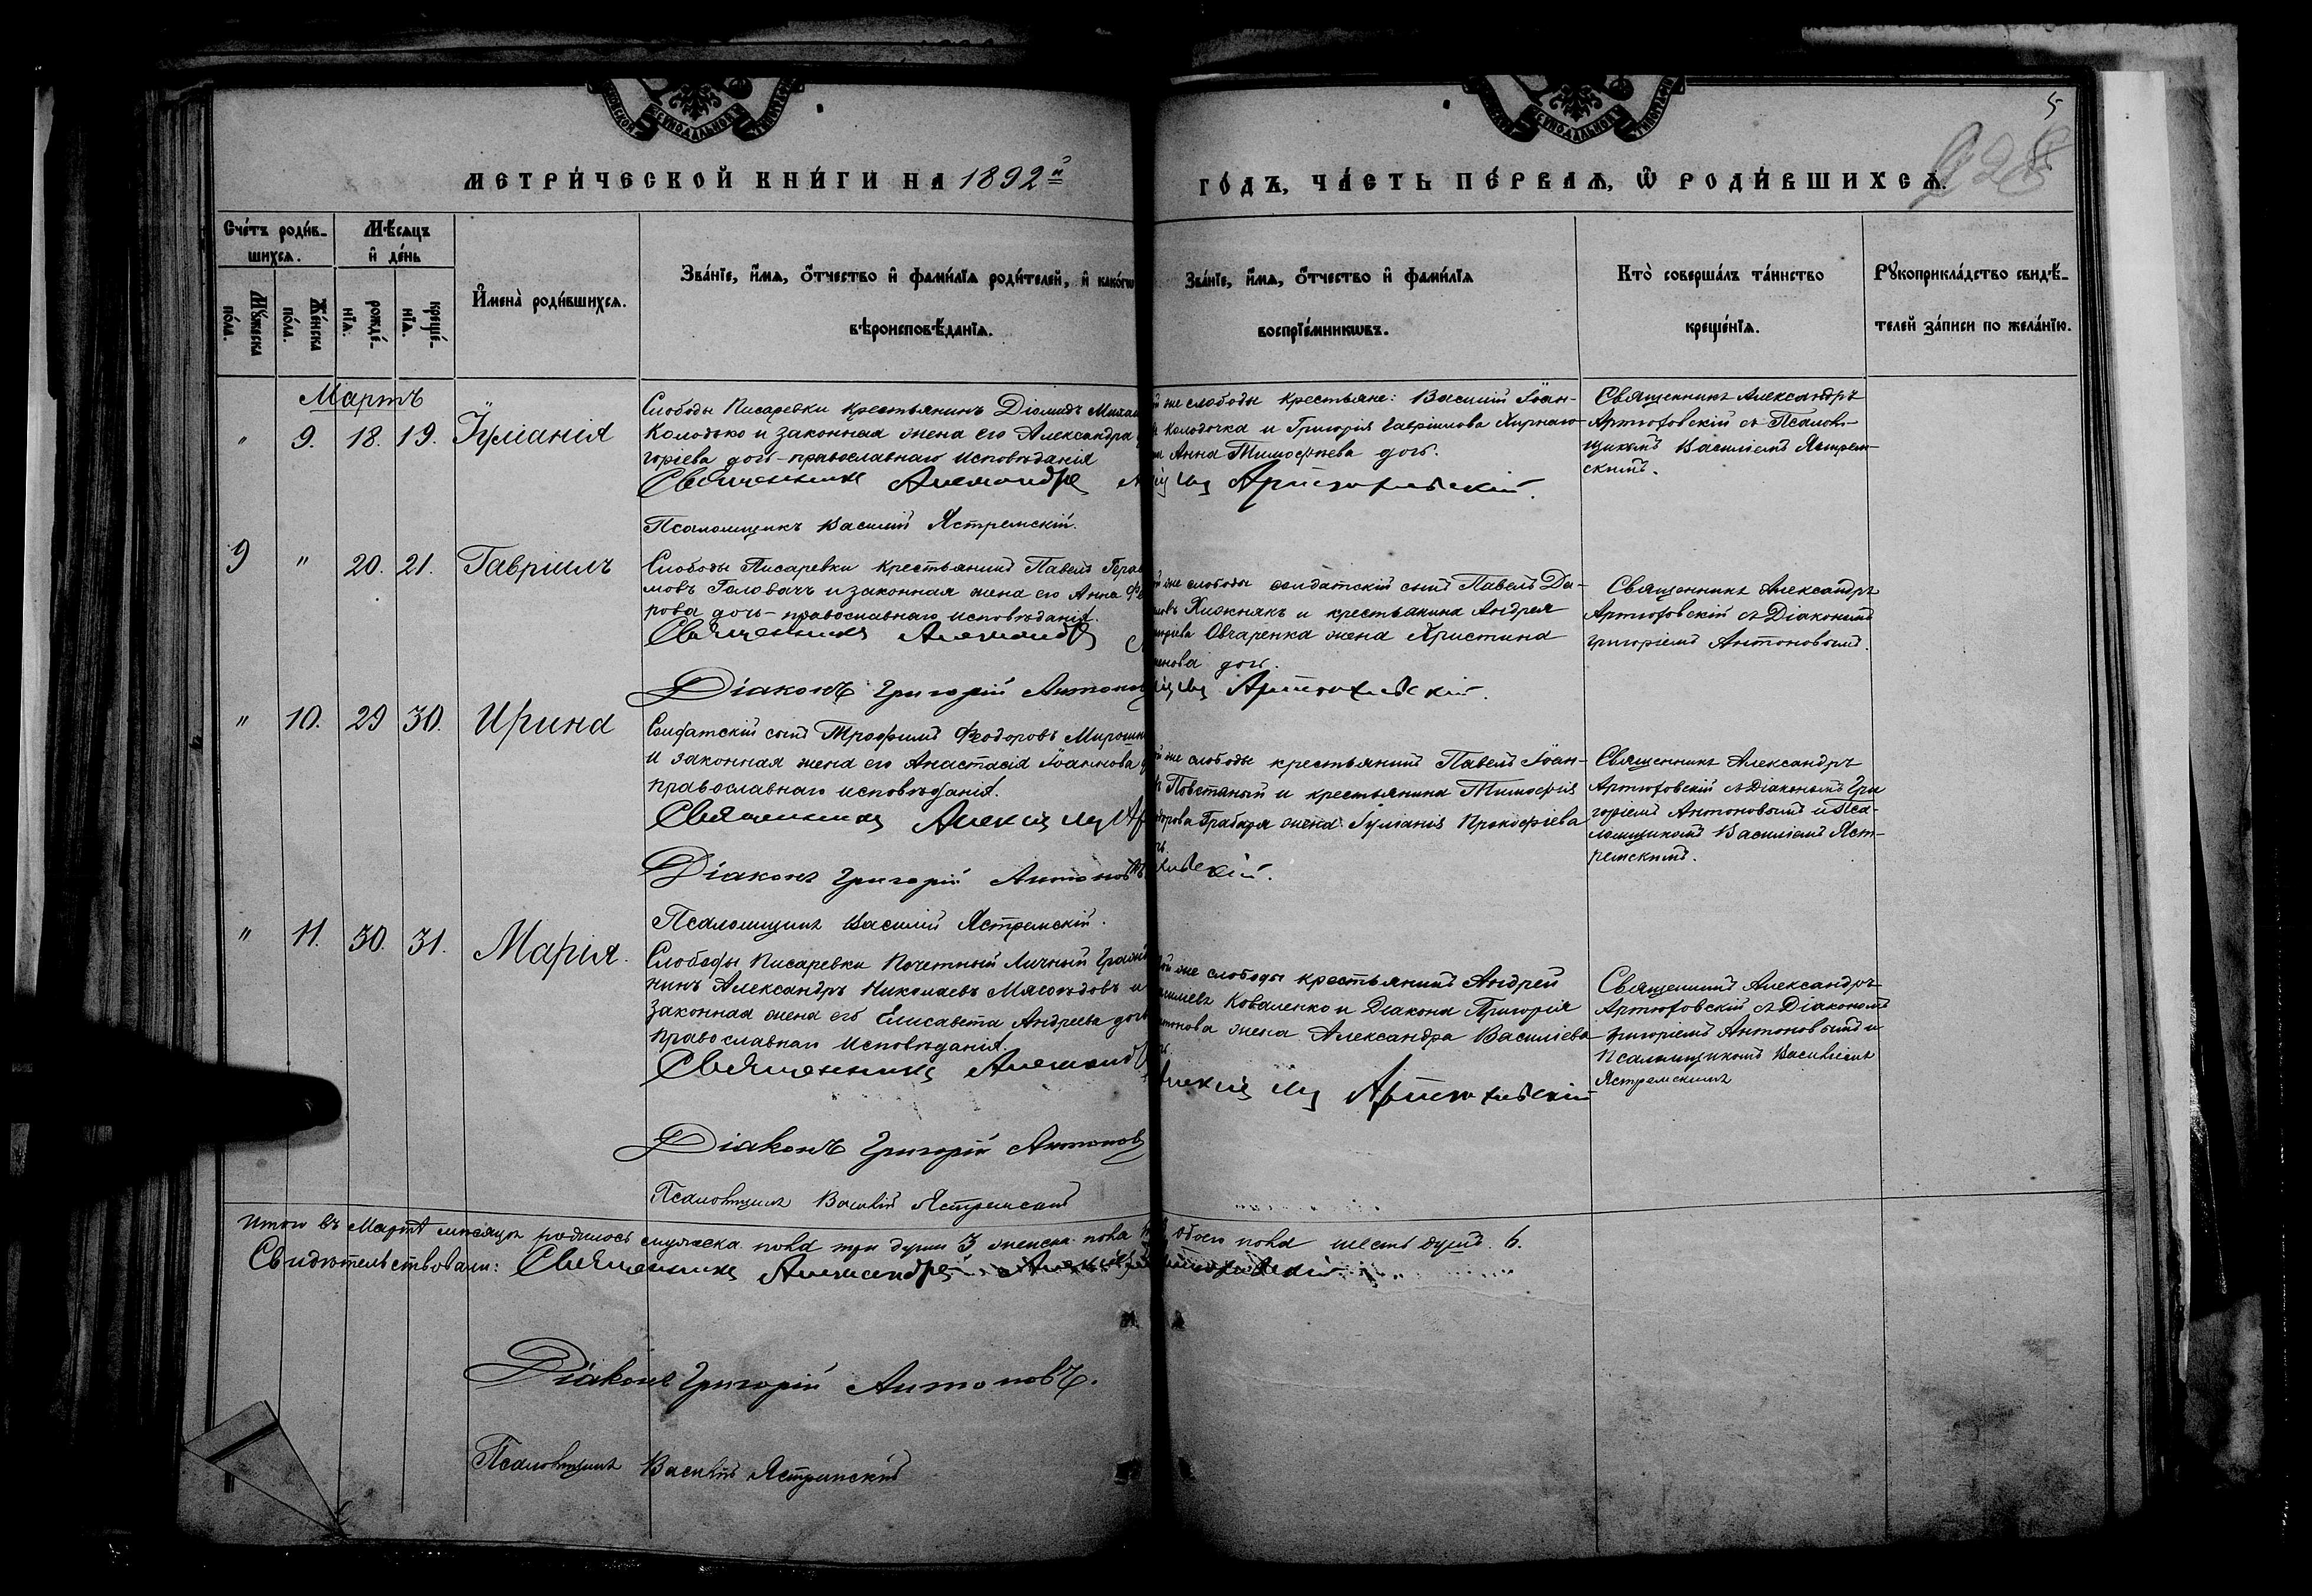 5
228
МЕТРИ́ЧЕСКОЙ КНИ́ГИ НА 1892й
ГО́ДЪ, ЧА́СТЬ ПЕ́РВАЯ, Ѡ РОДИ́ВШИХСЯ.
Сче́тъ роди́в-
шихся.
Мѣ́сяцъ
и де́нь
Мꙋ́жеска
по́ла.
Же́нска
по́ла.
рожде́-
нїя.
креще́-
нїя.
И҆мена̀ роди́вшихся.
Зва́нїе, и҆́мя, ѻ҆́тчество и҆ фами́лїя роди́телей, и҆ како́гѡ
вѣроисповѣ́данїя.
Зва́нїе, и҆́мя, ѻ҆́тчество и҆ фами́лїя
воспрїе́мникѡвъ.
Кто̀ соверша́лъ та́инство
креще́нїя.
Рꙋкоприкла́дство свидѣ́-
телей за́писи по жела́нїю.
Мартъ
" 9. 18. 19. Іуліанія
Слободы Писаревки крестьянинъ Діомидъ
Колодько и законная жена его Александра
горіева дочь - православнаго исповѣданія
Священникъ Александръ
Псаломщикъ Василій Ястремскій.
же слободы крестьяне: Василій Іоан-
Колодочка и Григорія Гавріилова
Анна Тимофѣева дочь.
Священникъ Александръ
Артюховскій съ Псалом-
щикомъ Василіемъ Ястрем-
скимъ.
9 " 20. 21. Гавріилъ
Слободы Писаревки крестьянинъ Павелъ
мовъ Головачъ и законная жена его Анна
рова дочь - православнаго исповѣданія.
Священникъ Александръ
Діаконъ Григорій Антоновъ
же слободы солдатскій сынъ Павелъ
Хижнякъ и крестьянина Андрея
Овчаренка жена Христина
дочь.
Артюховскій.
Священникъ Александръ
Артюховскій съ Діакономъ
Григоріемъ Антоновымъ.
" 10. 29 30. Ирина
Солдатскій сынъ Трофимъ Ѳеодоровъ
и законная жена его Анастасія Іоаннова
православнаго исповѣданія.
Священникъ
Діаконъ Григорій Антоновъ
Псаломщикъ Василій Ястремскій.
же слободы крестьянинъ Павелъ Іоан-
и крестьянина Тимофѣя
Грабаря жена Іуліанія Прокофіева
Священникъ Александръ
Артюховскій съ Діакономъ Гри
горіемъ Антоновымъ и Пса-
ломщикомъ Василіемъ Яст-
ремскимъ.
" 11. 30. 31. Марія.
Слободы Писаревки Почетный Личный
нинъ Александръ Николаевъ Мясоѣдовъ и
законная жена его Елисавета Андреева дочь
православнаго исповѣданія.
Священникъ Александръ
Діаконъ Григорій Антоновъ
Псаломщикъ Василій Ястремскій
же слободы крестьянинъ Андрей
Коваленко и Діакона Григорія
жена Александра Василіева
Артюховскій
Священникъ Александръ
Артюховскій съ Діакономъ
Григоріемъ Антоновымъ и
Псаломщикомъ Василіемъ
Ястремскимъ
Итого въ Мартѣ мѣсяцѣ родилось мужеска пола три души 3 женска пола обоего пола шесть душъ. 6.
Свидѣтельствовали: Священникъ Александръ
Діаконъ Григорій Антоновъ.
Псаломщикъ Василій Ястремскій